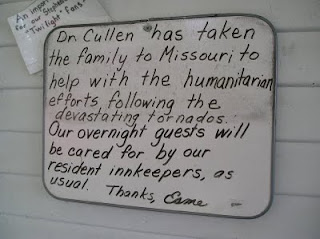 An important
for our Stephenie
"Twilight" fans:
Dr. Cullen has taken
the family to Missouri to
help with the humanitarian
efforts following the
devastating tornados.
Our overnight guests will
be cared for by our
resident innkeepers, as
usual. Thanks, Esme